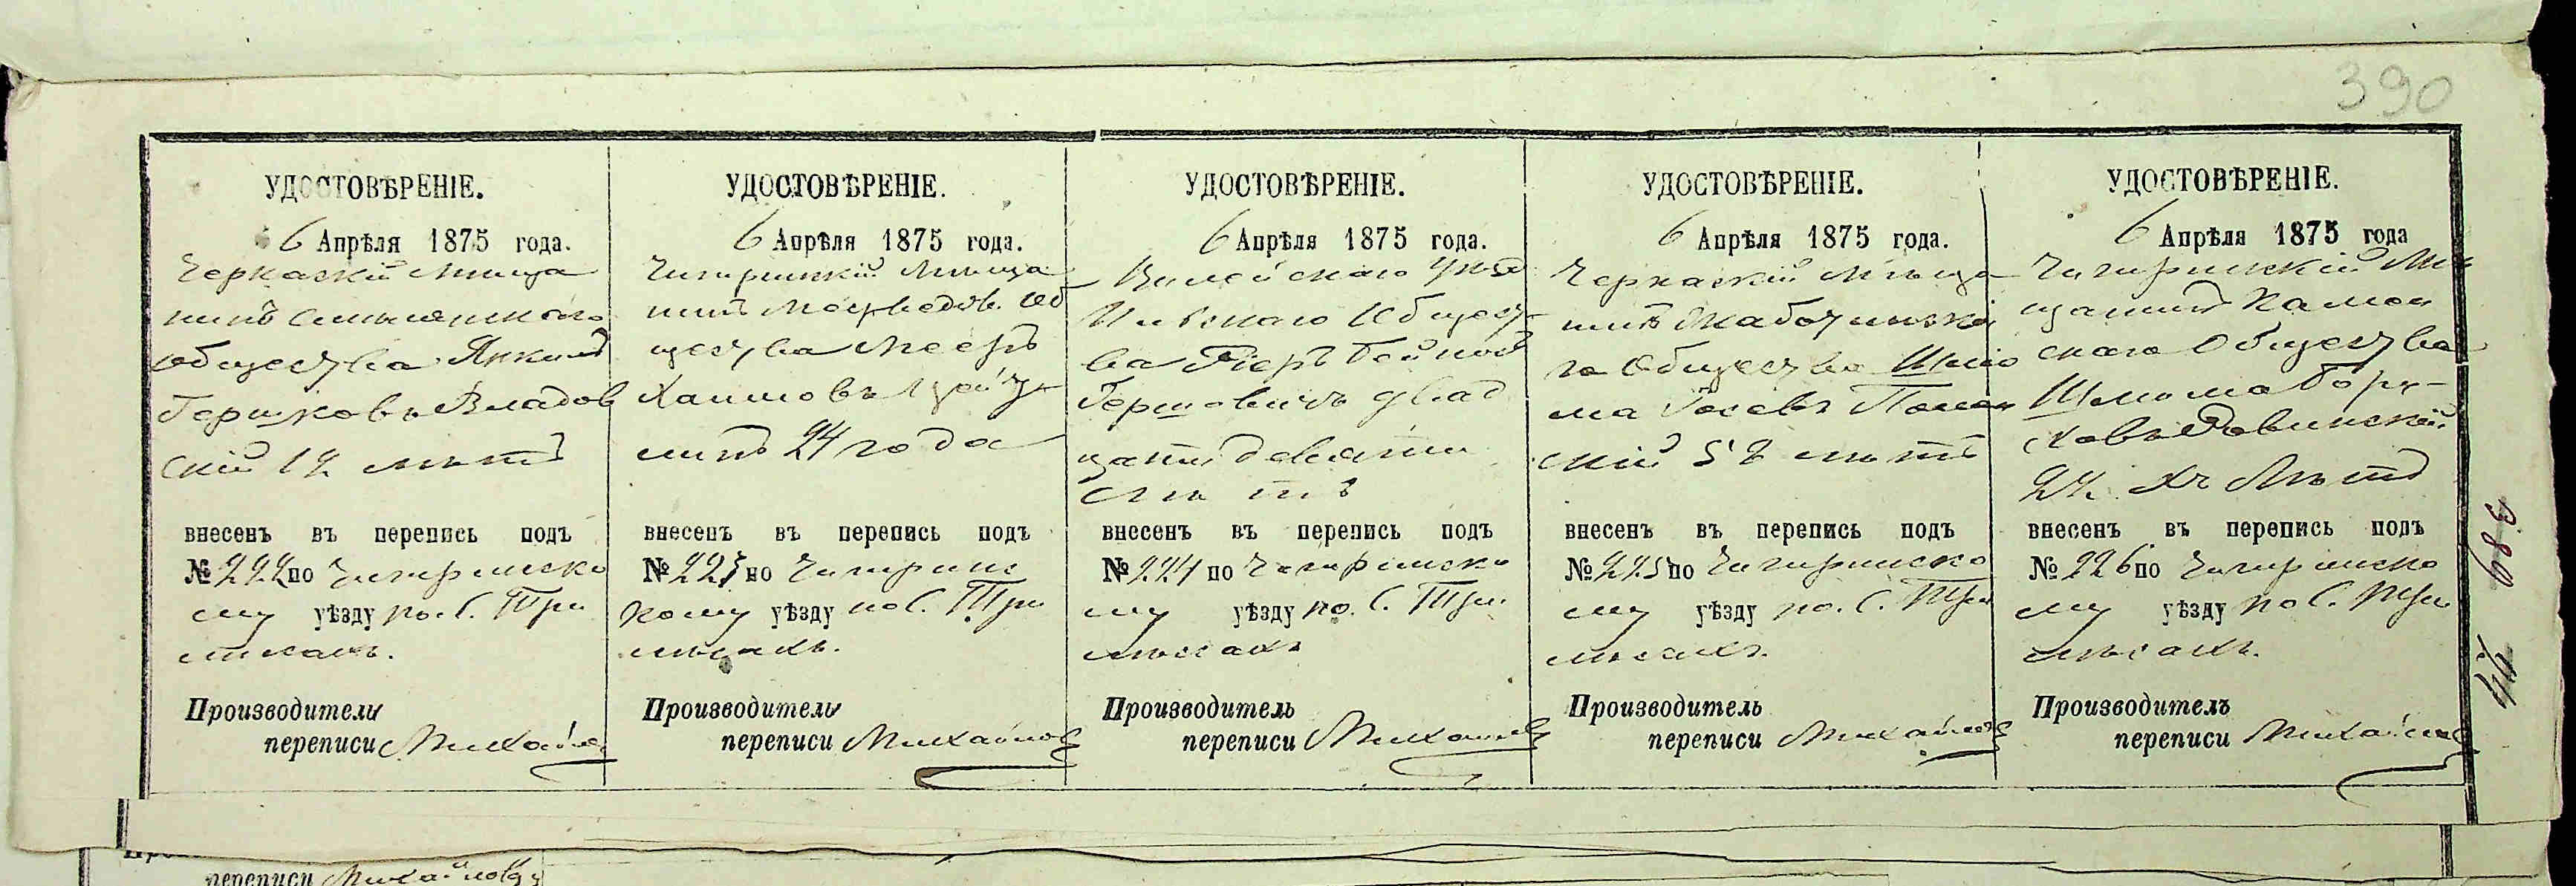 390
УДОСТОВѢРЕНІЕ.
6 Апрѣля 1875 года.
Черкаскій мѣща
нинъ Смѣлянскаго
общества Янкель
Гершковъ Владов
скій 12 лѣтъ
внесенъ въ перепись подъ
№ 222 по Чигиринско
му уѣзду по с. Три
лѣсахъ.
Производитель
переписи Михайлов
УДОСТОВѢРЕНІЕ.
6 Апрѣля 1875 года.
Чигиринскій мѣща
нинъ Медведов. об
щества Мееръ
Хаимовъ
24 года
внесенъ въ перепись подъ
№ 223 по Чигиринс
кому уѣзду по с. Три
лѣсахъ.
Производитель
переписи Михайлов
УДОСТОВѢРЕНІЕ.
6 Апрѣля 1875 года.
Вилейскаго Уѣзд
Ильскаго Общест
ва
Гершовичъ двад
цати девяти
лѣтъ
внесенъ въ перепись подъ
№ 224 по Чигиринско
му уѣзду по с. Три
лѣсахъ
Производитель
переписи Михайлов
УДОСТОВѢРЕНІЕ.
6 Апрѣля 1875 года.
Черкаскій Мѣща
нинъ Жаботинска
го Общества Шлио
ма
скій лѣтъ
внесенъ въ перепись подъ
№ 225 по Чигиринско
му уѣзду по с. Три
лѣсахъ.
Производитель
переписи Михайлов
УДОСТОВѢРЕНІЕ.
6 Апрѣля 1875 года
Чигиринскій Мѣ
щанинъ Камен
скаго Общества
Шлиома Бору
ховъ
лѣтъ
внесенъ въ перепись подъ
№ 226 по Чигиринско
му уѣзду по с. Три
лѣсахъ.
Производитель
переписи Михайлов
389
переписи Михайловъ